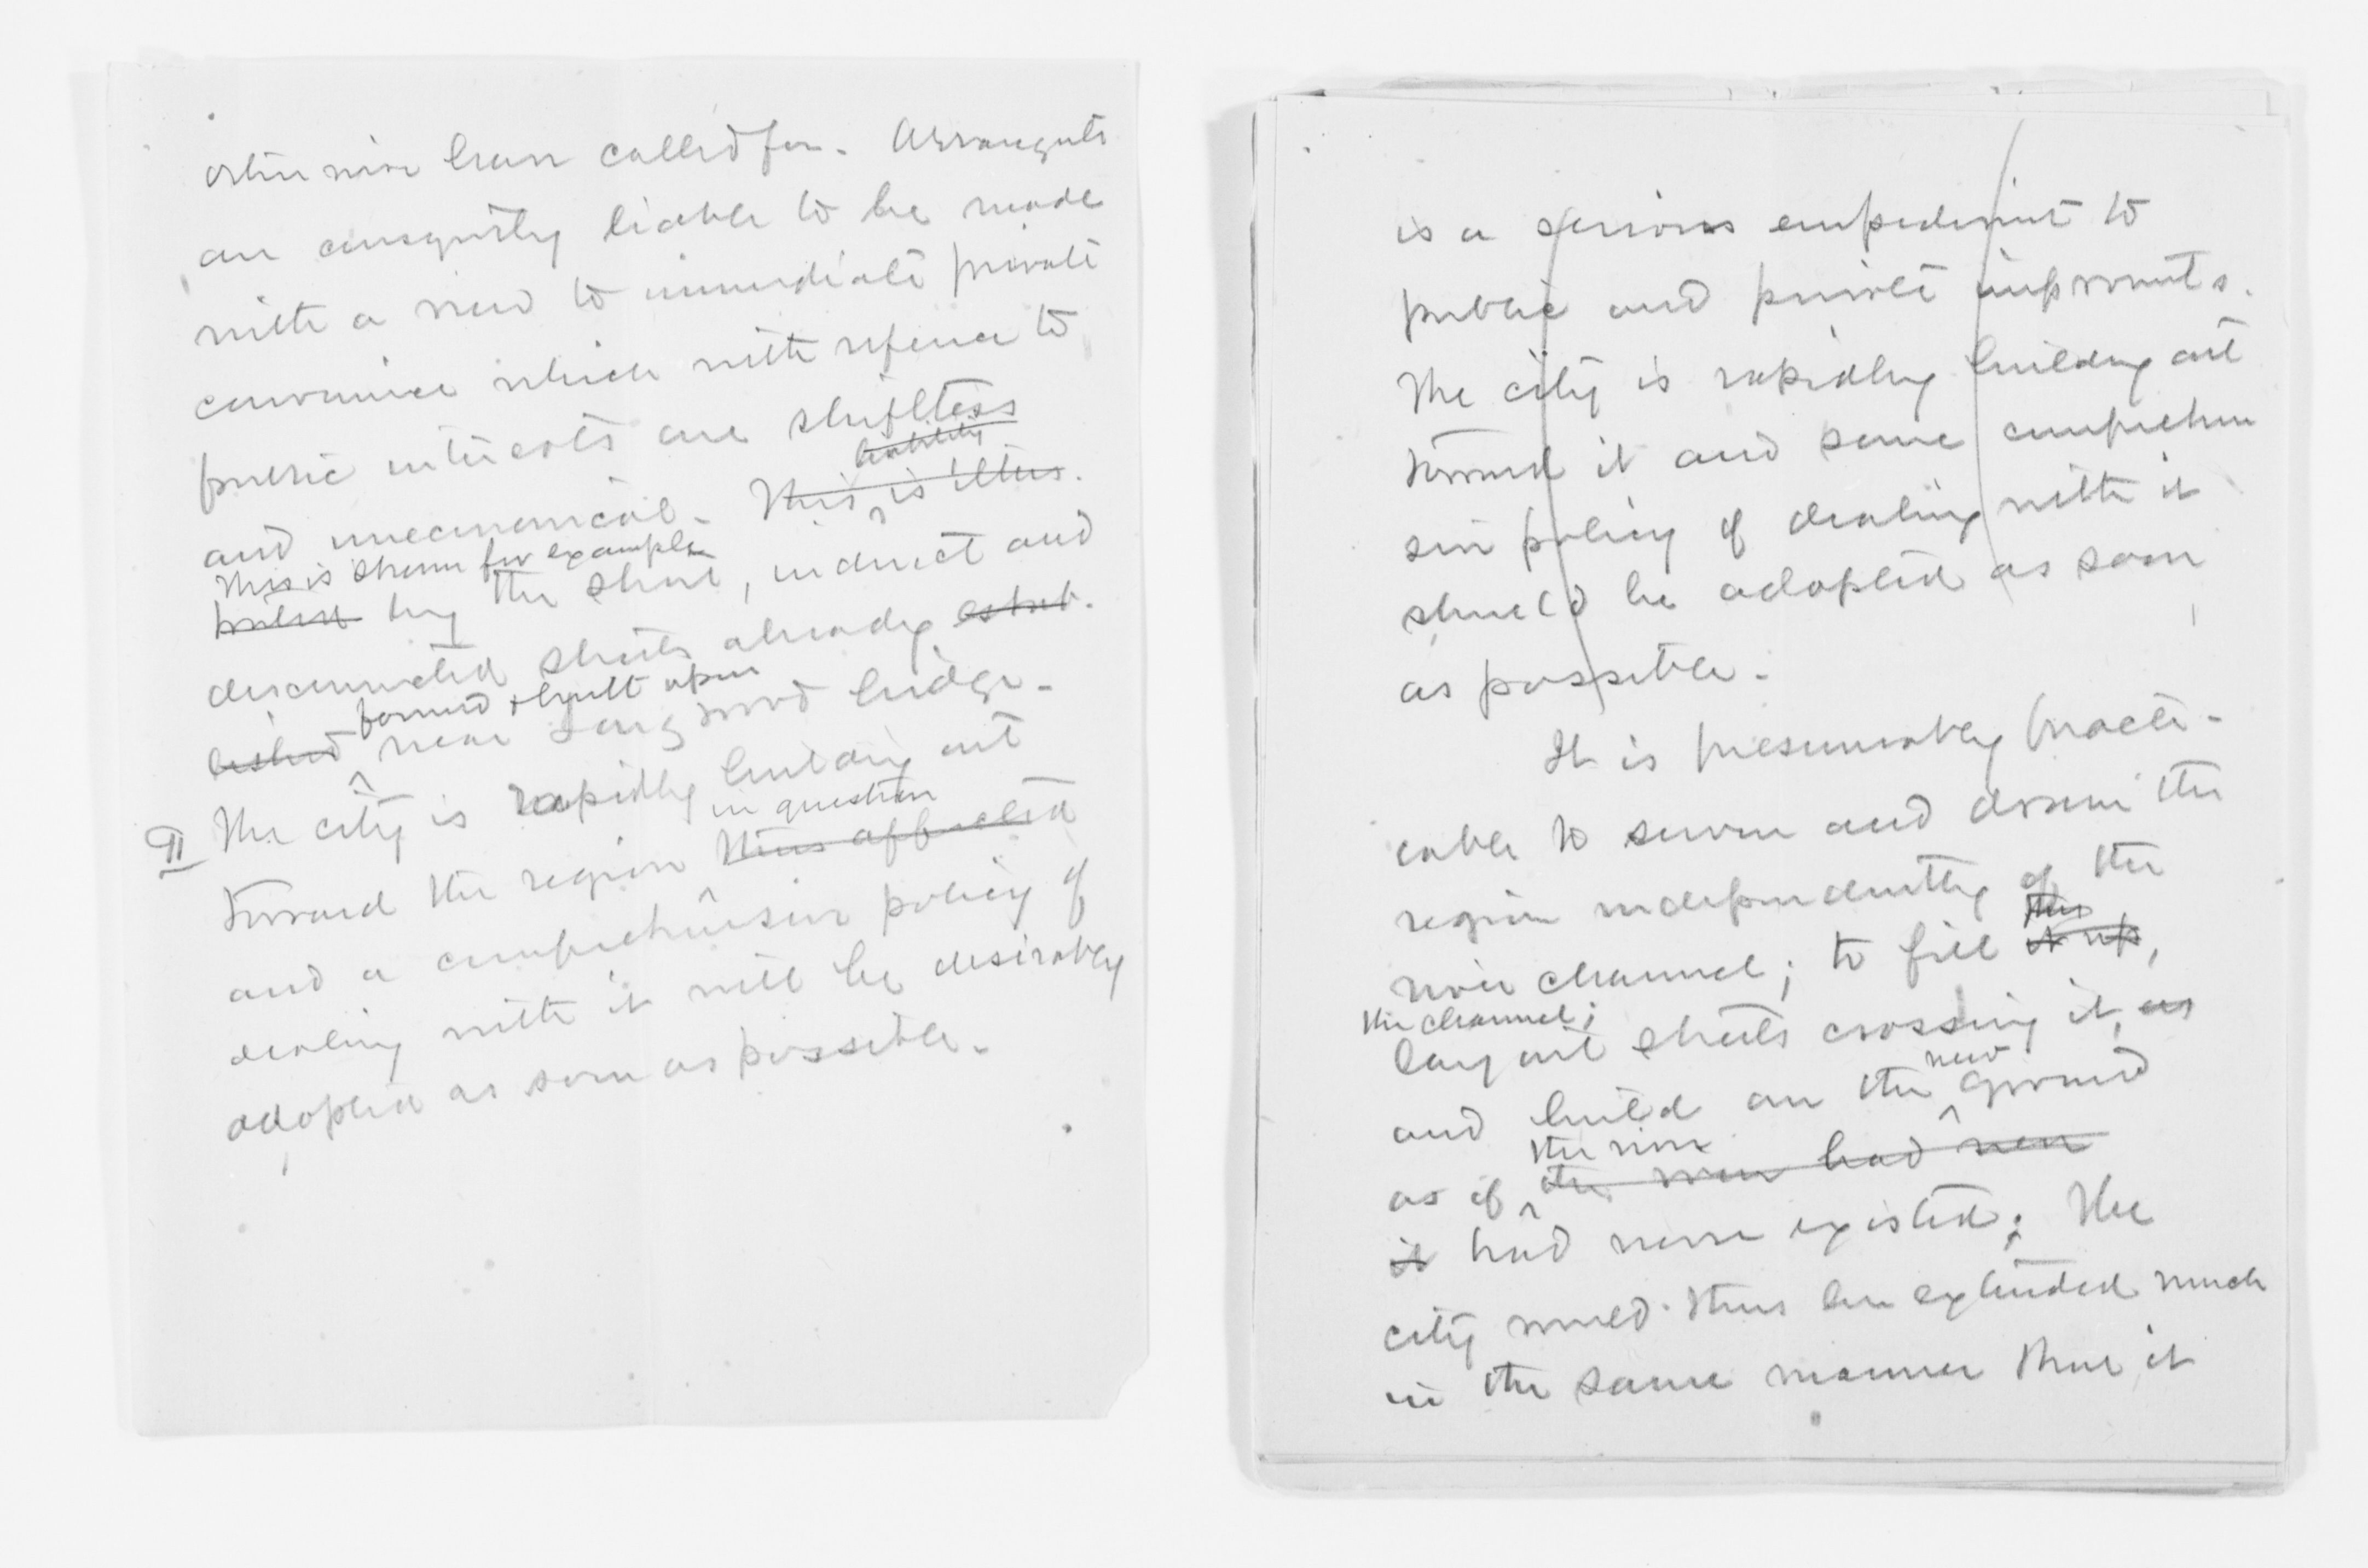 otherwise been called for. Arrangmts
are consequently liable to be made
with a view to immediate private
convenience which with reference to
public interests are shiftless
liability
and uneconomical. This is illus.
This is shown for example
by the short, indirect and
disconnected streets already estab-
formed & built upon
lished near Longwood bridge.
The city is rapidly building out
in question
toward the region thus affected
and a comprehensive policy of
dealing with it will be desirably
adopted as soon as possible.
is a serious impediment to
public and private improvmts.
The city is rapidly building out
toward it and some comprehen
sive policy of dealing with it
should be adopted as soon
as possible.
It is presumably practi-
cable to sewer and drain the
region independently of the
this
river channel; to fill it up,
the channel;
lay out streets crossing it, as
new
and build on the ground
the river
as if the river had never
it had never existed; The
city would thus be extended much
in the same manner that it